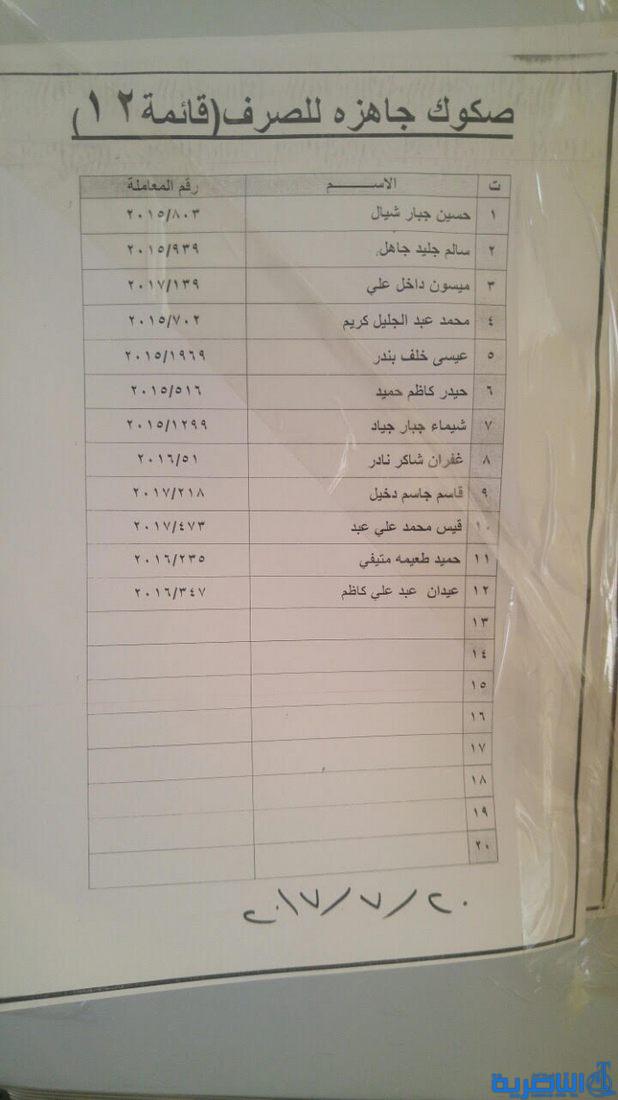 صكوك جاهزه للصرف (قائمة ١٢)
ت الاســـــم رقم المعاملة
١ حسين جبار شيال ٢٠١٥/٨٠٣
٢ سالم جليد جاهل ٢٠١٥/٩٣٩
٣ ميسون داخل علي ٢٠١٧/١٣٩
٤ محمد عبد الجليل كريم ٢٠١٥/٧٠٢
٥ عيسى خلف بندر ٢٠١٥/١٩٦٩
٦ حيدر كاظم حميد ٢٠١٥/٥١٦
٧ شيماء جبار جياد ٢٠١٥/١٢٩٩
٨ غفران شاكر نادر ٢٠١٦/٥١
٩ قاسم جاسم دخيل ٢٠١٧/٢١٨
١٠ قيس محمد علي عبد ٢٠١٧/٤٧٣
١١ حميد طعيمه متيفي ٢٠١٦/٢٣٥
١٢ عيدان عبد علي كاظم ٢٠١٦/٣٤٧
١٣
١٤
١٥
١٦
١٧
١٨
١٩
٢٠
٢٠١٧/٧/٢٠
الناصرية